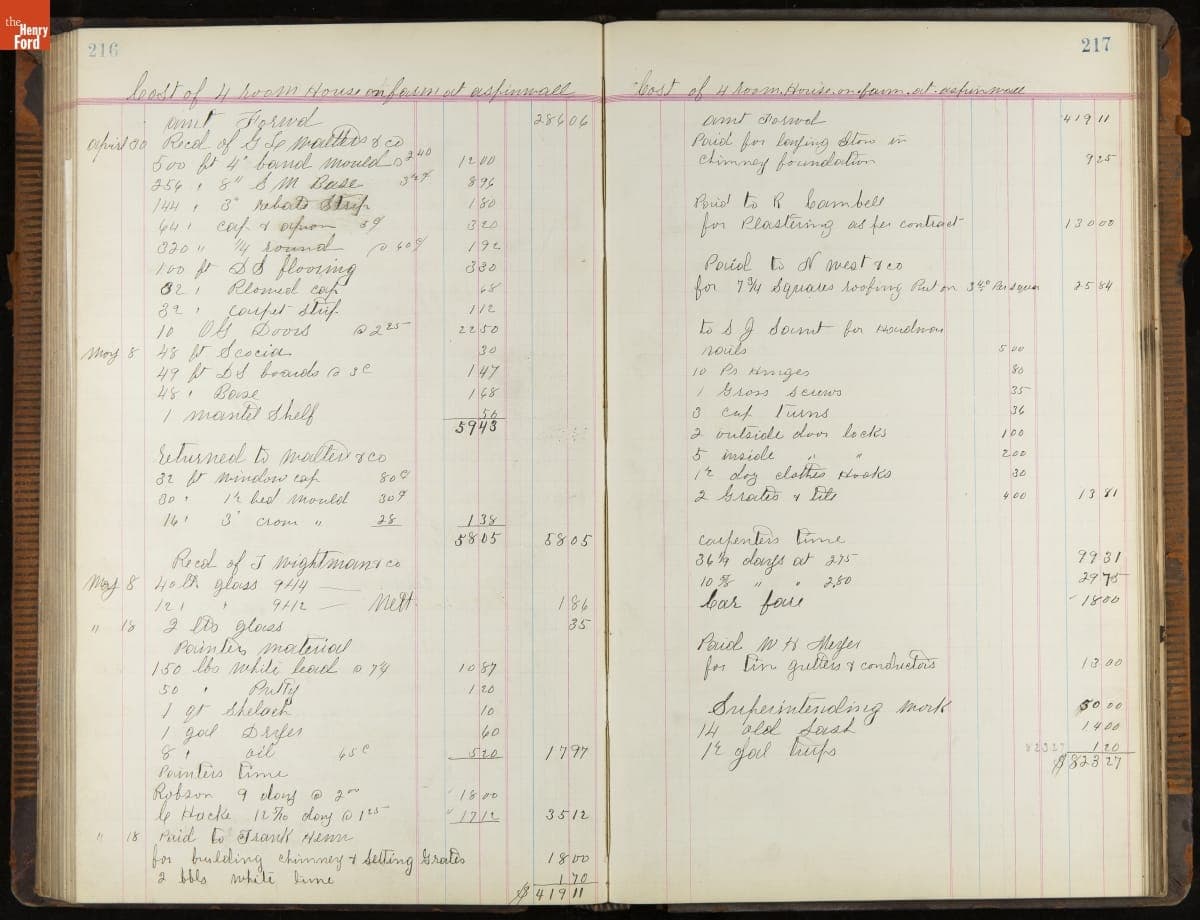 the Henry Ford
216
Cost of 4 room House on farm at aspinwall
amt Forwd 286 06
April 30 Recd of G L Walters & co
500 ft 4" band mould @ 2 40 12 00
256 " 8" S M Base 3 1/2 ¢ 8 96
144 " 3" rebate Strip 1 80
64 " cap & apron 5¢ 3 20
320 " 1/4 round @ 60¢ 1 92
100 ft D S flooring 3 30
32 " Plowed cap 68
32 " carpet Strip 1 12
10 O G Doors @ 2 25 22 50
May 8 48 ft Scocia 30
49 ft D S boards @ 3c 1 47
48 " Base 1 68
1 mantel Shelf 50
59 43
returned to Walters & co
32 ft window cap 80¢
30 " 1 1/2 bed mould 30¢
14 " 3" crown " 28 1 38
58 05 58 05
Recd of T Wightman & co
May 8 40 lts glass 9+14
12 " " 9+12 Nett 1 86
" 18 2 lts glass 35
Painters material
150 lbs White lead @ 7 1/4 10 87
50 " Putty 1 20
1 qt Shelack 10
1 gal Dryer 60
8 " oil 65c 5 20 17 97
Painters time
Robson 9 days @ 2 00 18 00
C Hacke days @ 1 25 17 12 35 12
" 18 Paid to Frank Henn
for building chimney & Setting Grates 18 00
2 bbls white lime 1 70
$ 419 11
217
Cost of 4 room House on farm at aspinwall
amt Forwd 419 11
Paid for laying Stone in
chimney foundation 9 25
Paid to R Cambell
for Plastering as per contract 130 00
Paid to N West & co
for 7 3/4 Squares roofing Put on Per square 25 84
to S J for Hardware
nails 5 00
10 Pr Hinges 80
1 Gross Screws 35
3 cup turns 36
2 outside door locks 1 00
5 inside " " 2 00
1 1/2 doz clothes Hooks 30
2 Grates & tile 4 00 13 81
carpenters time
days at 2 75 99 31
" " 2 80 29 75
Car fare 18 00
Paid W H Meyer
for tin gutters & conductors 13 00
Superintending work 50 00
14 old Sash 14 00
1 1/2 gal turps 823 27 1 20
$ 823 27